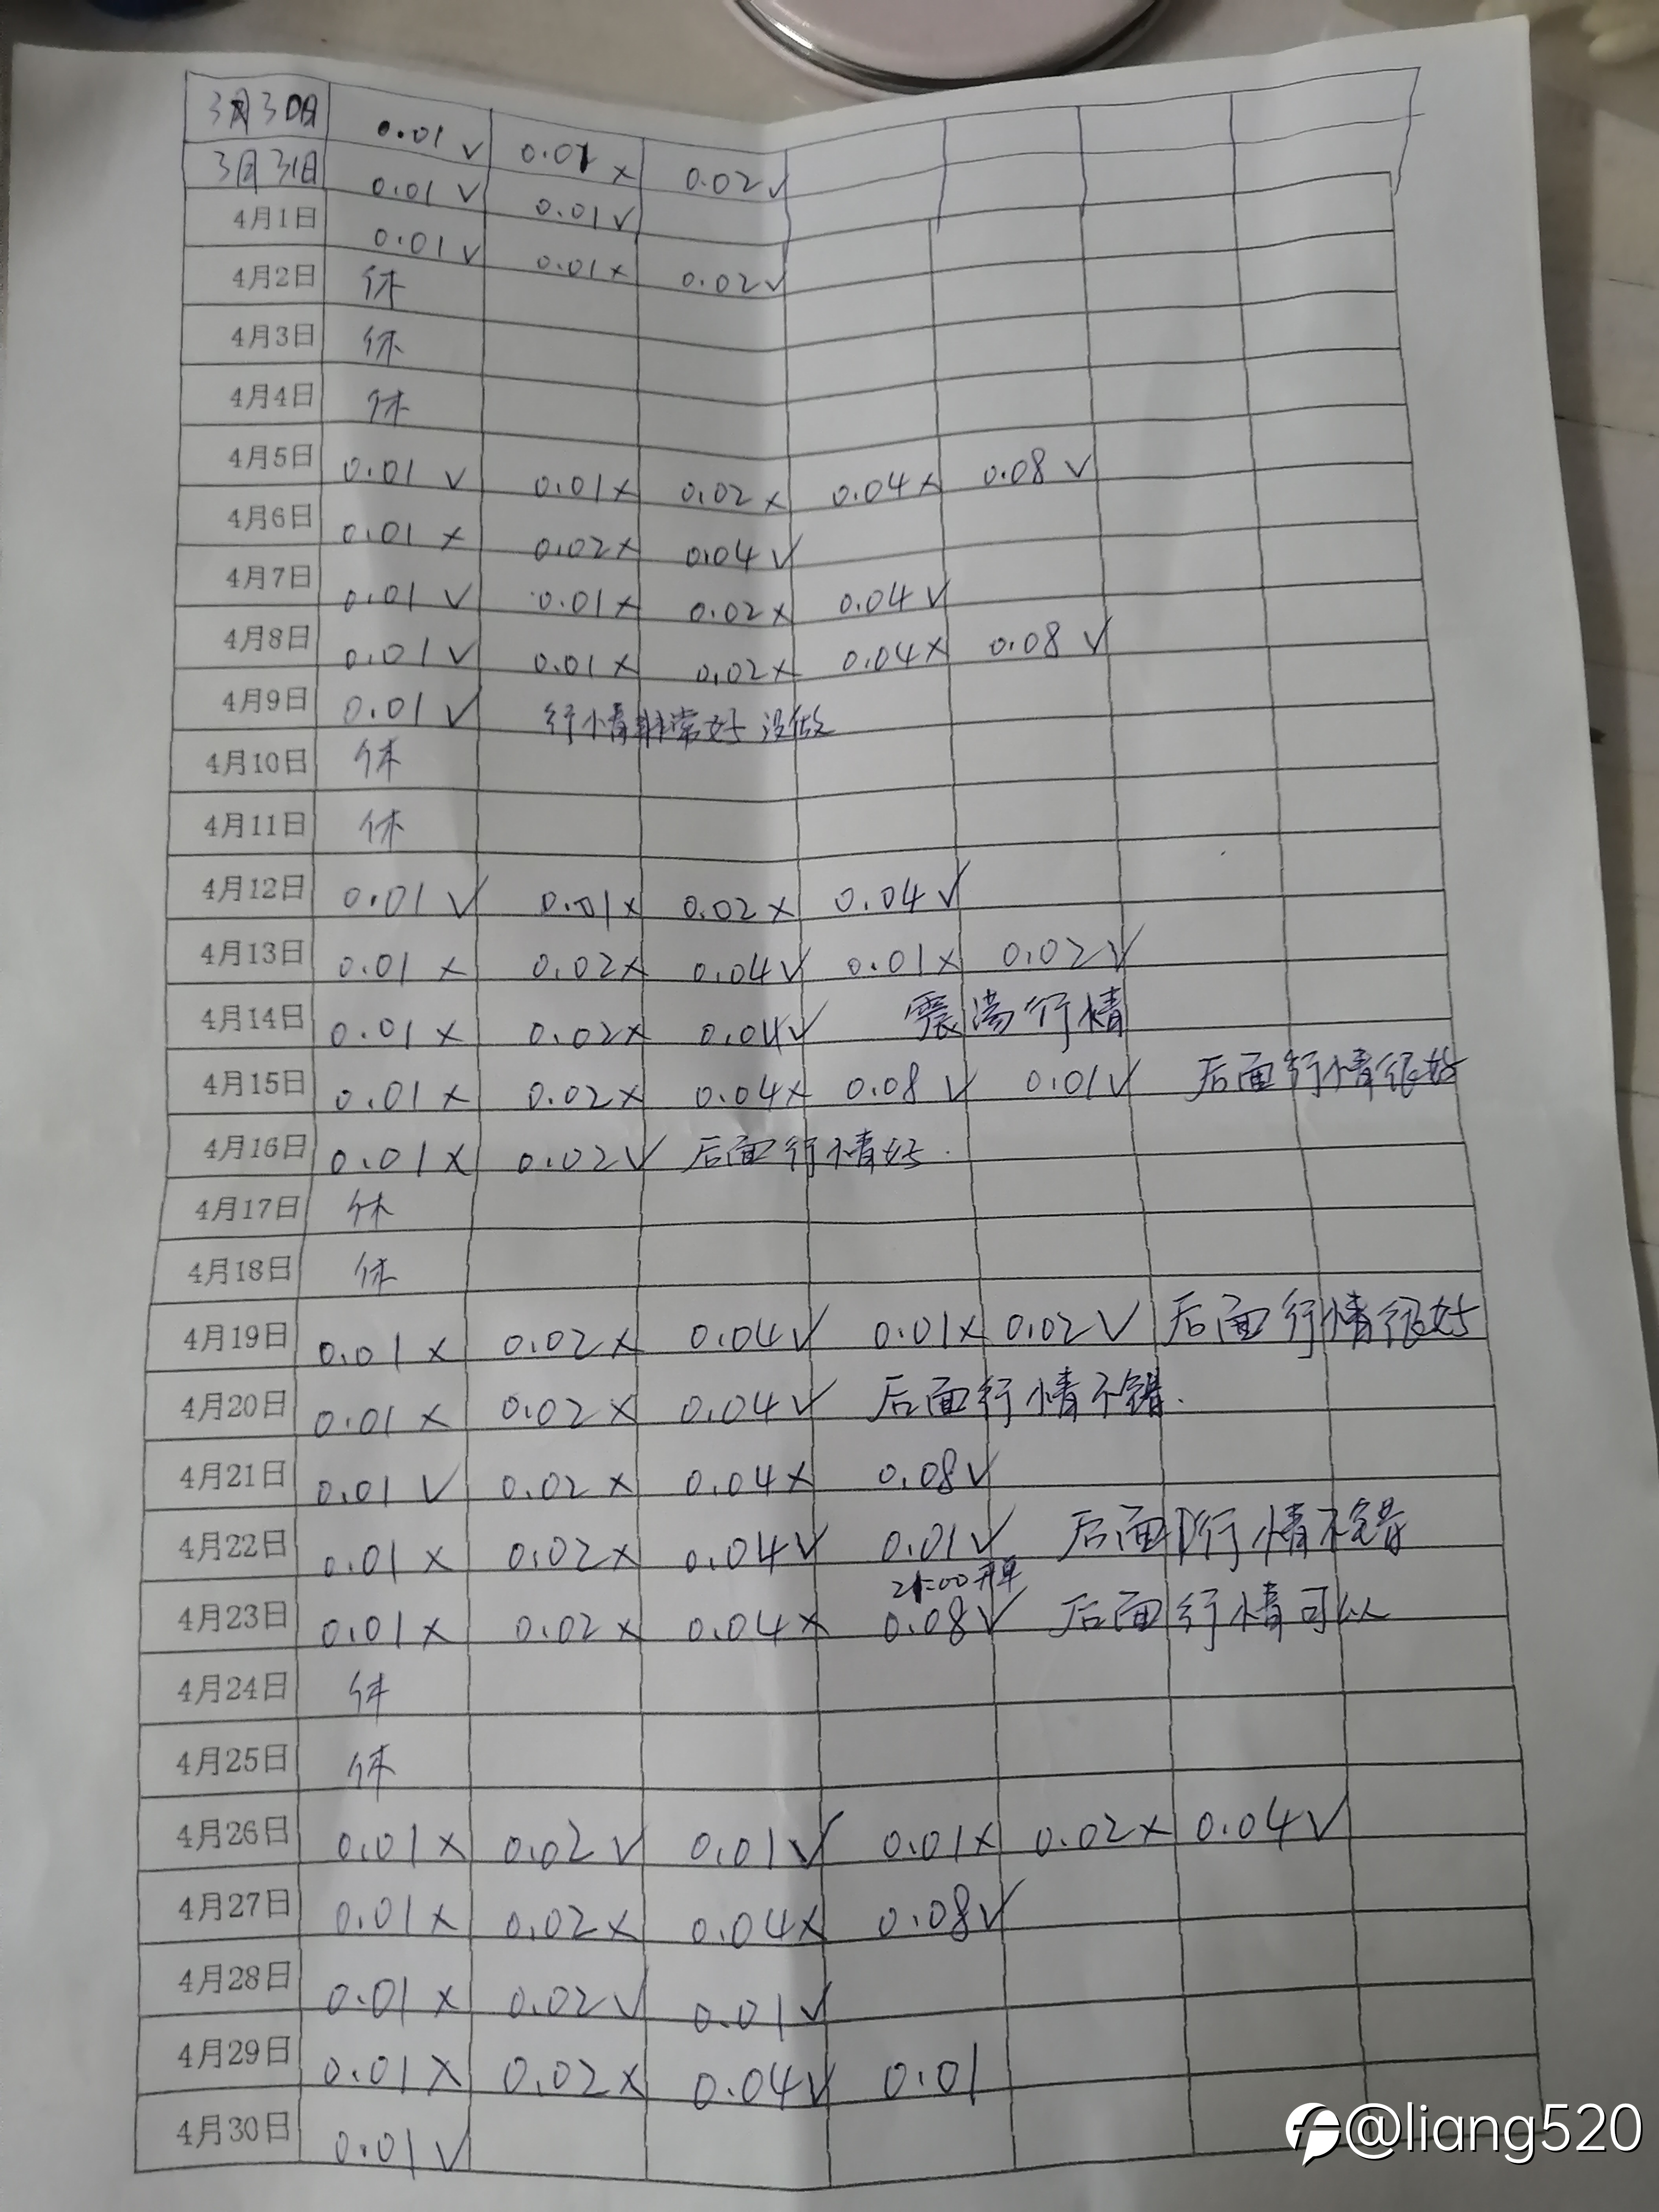 3月30日 0.01 √ 0.01 × 0.02 √
3月31日 0.01 √ 0.01 √
4月1日 0.01 √ 0.01 × 0.02 √
4月2日 休
4月3日 休
4月4日 休
4月5日 0.01 √ 0.01 × 0.02 × 0.04 × 0.08 √
4月6日 0.01 × 0.02 × 0.04 √
4月7日 0.01 √ 0.01 × 0.02 × 0.04 √
4月8日 0.01 √ 0.01 × 0.02 × 0.04 × 0.08 √
4月9日 0.01 √ 行情非常好 没做
4月10日 休
4月11日 休
4月12日 0.01 √ 0.01 × 0.02 × 0.04 √
4月13日 0.01 × 0.02 × 0.04 √ 0.01 × 0.02 √
4月14日 0.01 × 0.02 × 0.04 √ 震荡行情
4月15日 0.01 × 0.02 × 0.04 × 0.08 √ 0.01 √ 后面行情很好
4月16日 0.01 × 0.02 √ 后面行情好.
4月17日 休
4月18日 休
4月19日 0.01 × 0.02 × 0.04 √ 0.01 × 0.02 √ 后面行情很好
4月20日 0.01 × 0.02 × 0.04 √ 后面行情不错.
4月21日 0.01 √ 0.02 × 0.04 × 0.08 √
4月22日 0.01 × 0.02 × 0.04 √ 0.01 √ 后面行情不错
21:00开单
4月23日 0.01 × 0.02 × 0.04 × 0.08 √ 后面行情可以
4月24日 休
4月25日 休
4月26日 0.01 × 0.02 √ 0.01 √ 0.01 × 0.02 × 0.04 √
4月27日 0.01 × 0.02 × 0.04 × 0.08 √
4月28日 0.01 × 0.02 √ 0.01 √
4月29日 0.01 × 0.02 × 0.04 √ 0.01
4月30日 0.01 √
@liang520